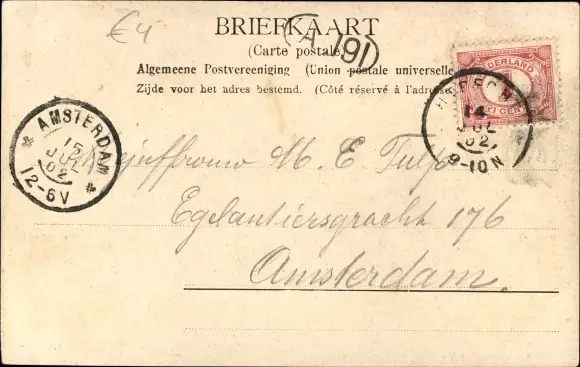 €4
BRIEFKAART
(A 191)
(Carte postale)
Algemeene Postvereeniging (Union postale universelle
Zijde voor het adres bestemd. (Côté réservé à l'adresse
NEDERLAND
CENT
UTRECHT
14
JUL
02
9-10N
AMSTERDAM
15
JUL
02
12-6V
Mejuffrouw M. E. Tulp
Egelantiersgracht 176
Amsterdam.